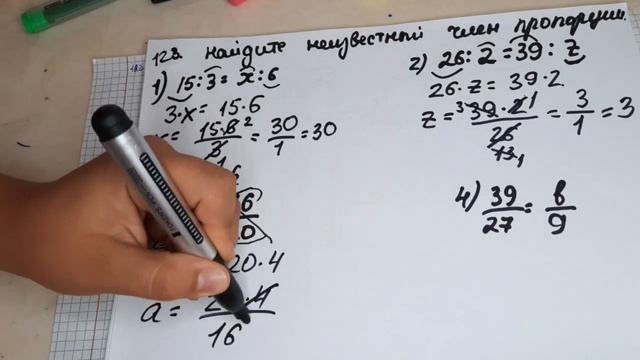 123. найдите неизвестный член пропорции.
1) 15:3=x:6
3·x= 15·6
= 15·6 2 / 3 1 = 30 / 1 =30
20·4
a= ·4 / 16
2) 26:2=39:z
26·z= 39·2
z= 3 39·2 1 / 26 13 1 = 3 / 1 =3
4) 39 / 27 = b / 9